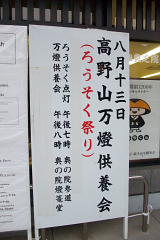 八月十三日
高野山万燈供養会
（ろうそく祭り）
ろうそく点灯 午後七時 奥の院参道
万燈供養会 午後八時 奥の院燈籠堂